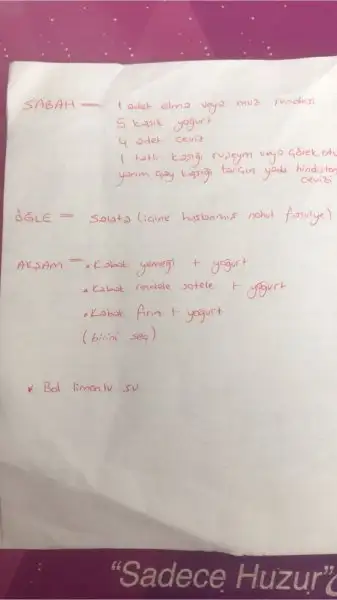 SABAH — 1 adet elma veya muz rendesi
5 kaşık yoğurt
4 adet ceviz
1 tatlı kaşığı rüşeym veya çörek otu
yarım çay kaşığı tarçın yada hindistan
cevizi
ÖĞLE = Salata (içine haşlanmış nohut fasulye)
AKŞAM — • Kabak yemeği + yoğurt
• Kabak rendele sotele + yoğurt
• Kabak fırın + yoğurt
(birini seç)
* Bol limonlu su
"Sadece Huzur"